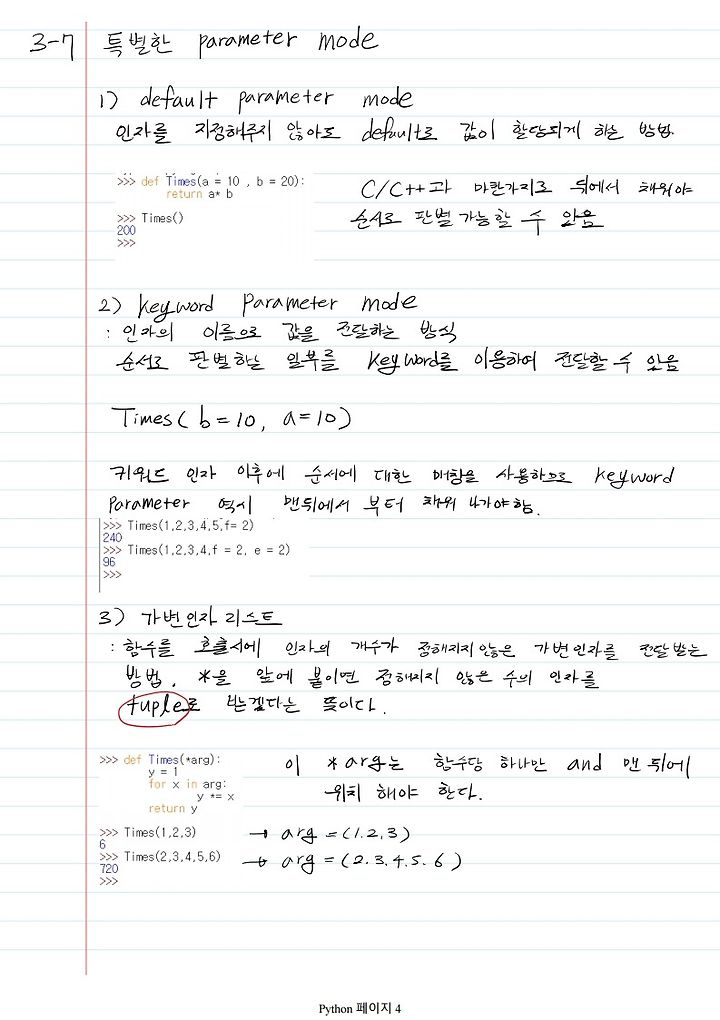 3-7 특별한 parameter mode
1) default parameter mode
인자를 지정해주지 않아도 default로 값이 할당되게 하는 방법.
>>> def Times(a = 10 , b = 20):
return a* b
>>> Times()
200
>>>
C/C++과 마찬가지로 뒤에서 채워야
순서로 판별 가능할 수 있음
2) keyword parameter mode
: 인자의 이름으로 값을 전달하는 방식
순서로 판별하는 일부를 keyword를 이용하여 전달할 수 있음
Times( b=10, a=10)
키워드 인자 이후에 순서에 대한 매칭을 사용하므로 keyword
parameter 역시 맨뒤에서 부터 채워 나가야함.
>>> Times(1,2,3,4,5,f= 2)
240
>>> Times(1,2,3,4,f = 2, e = 2)
96
>>>
3) 가변인자 리스트
: 함수를 호출시에 인자의 개수가 정해지지 않은 가변인자를 전달 받는
방법. *을 앞에 붙이면 정해지지 않은 수의 인자를
tuple로 받겠다는 뜻이다.
>>> def Times(*arg):
y = 1
for x in arg:
y *= x
return y
이 *arg는 함수당 하나만 and 맨 뒤에
위치 해야 한다.
>>> Times(1,2,3) → arg = (1.2,3)
6
>>> Times(2,3,4,5,6) → arg = (2.3.4.5.6)
720
>>>
Python 페이지 4